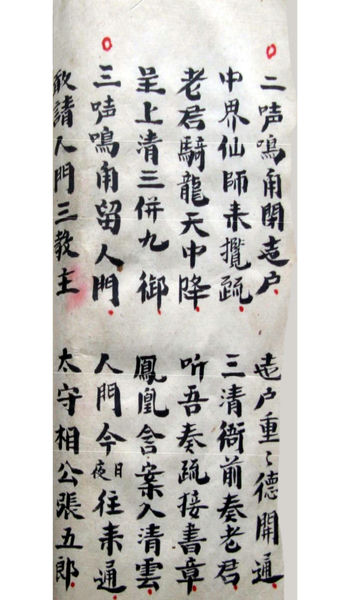 二声鳴角開志户 志户重〻德開通
中界仙師来攬疏 三清衙前奏老君
老君騎龍天中降 听吾奏疏接書章
呈上清三併九御 鳳凰舍案入清雲
三声鳴角留人門 人門今日夜往来通
敢請人門三教主 太守相公張五郎